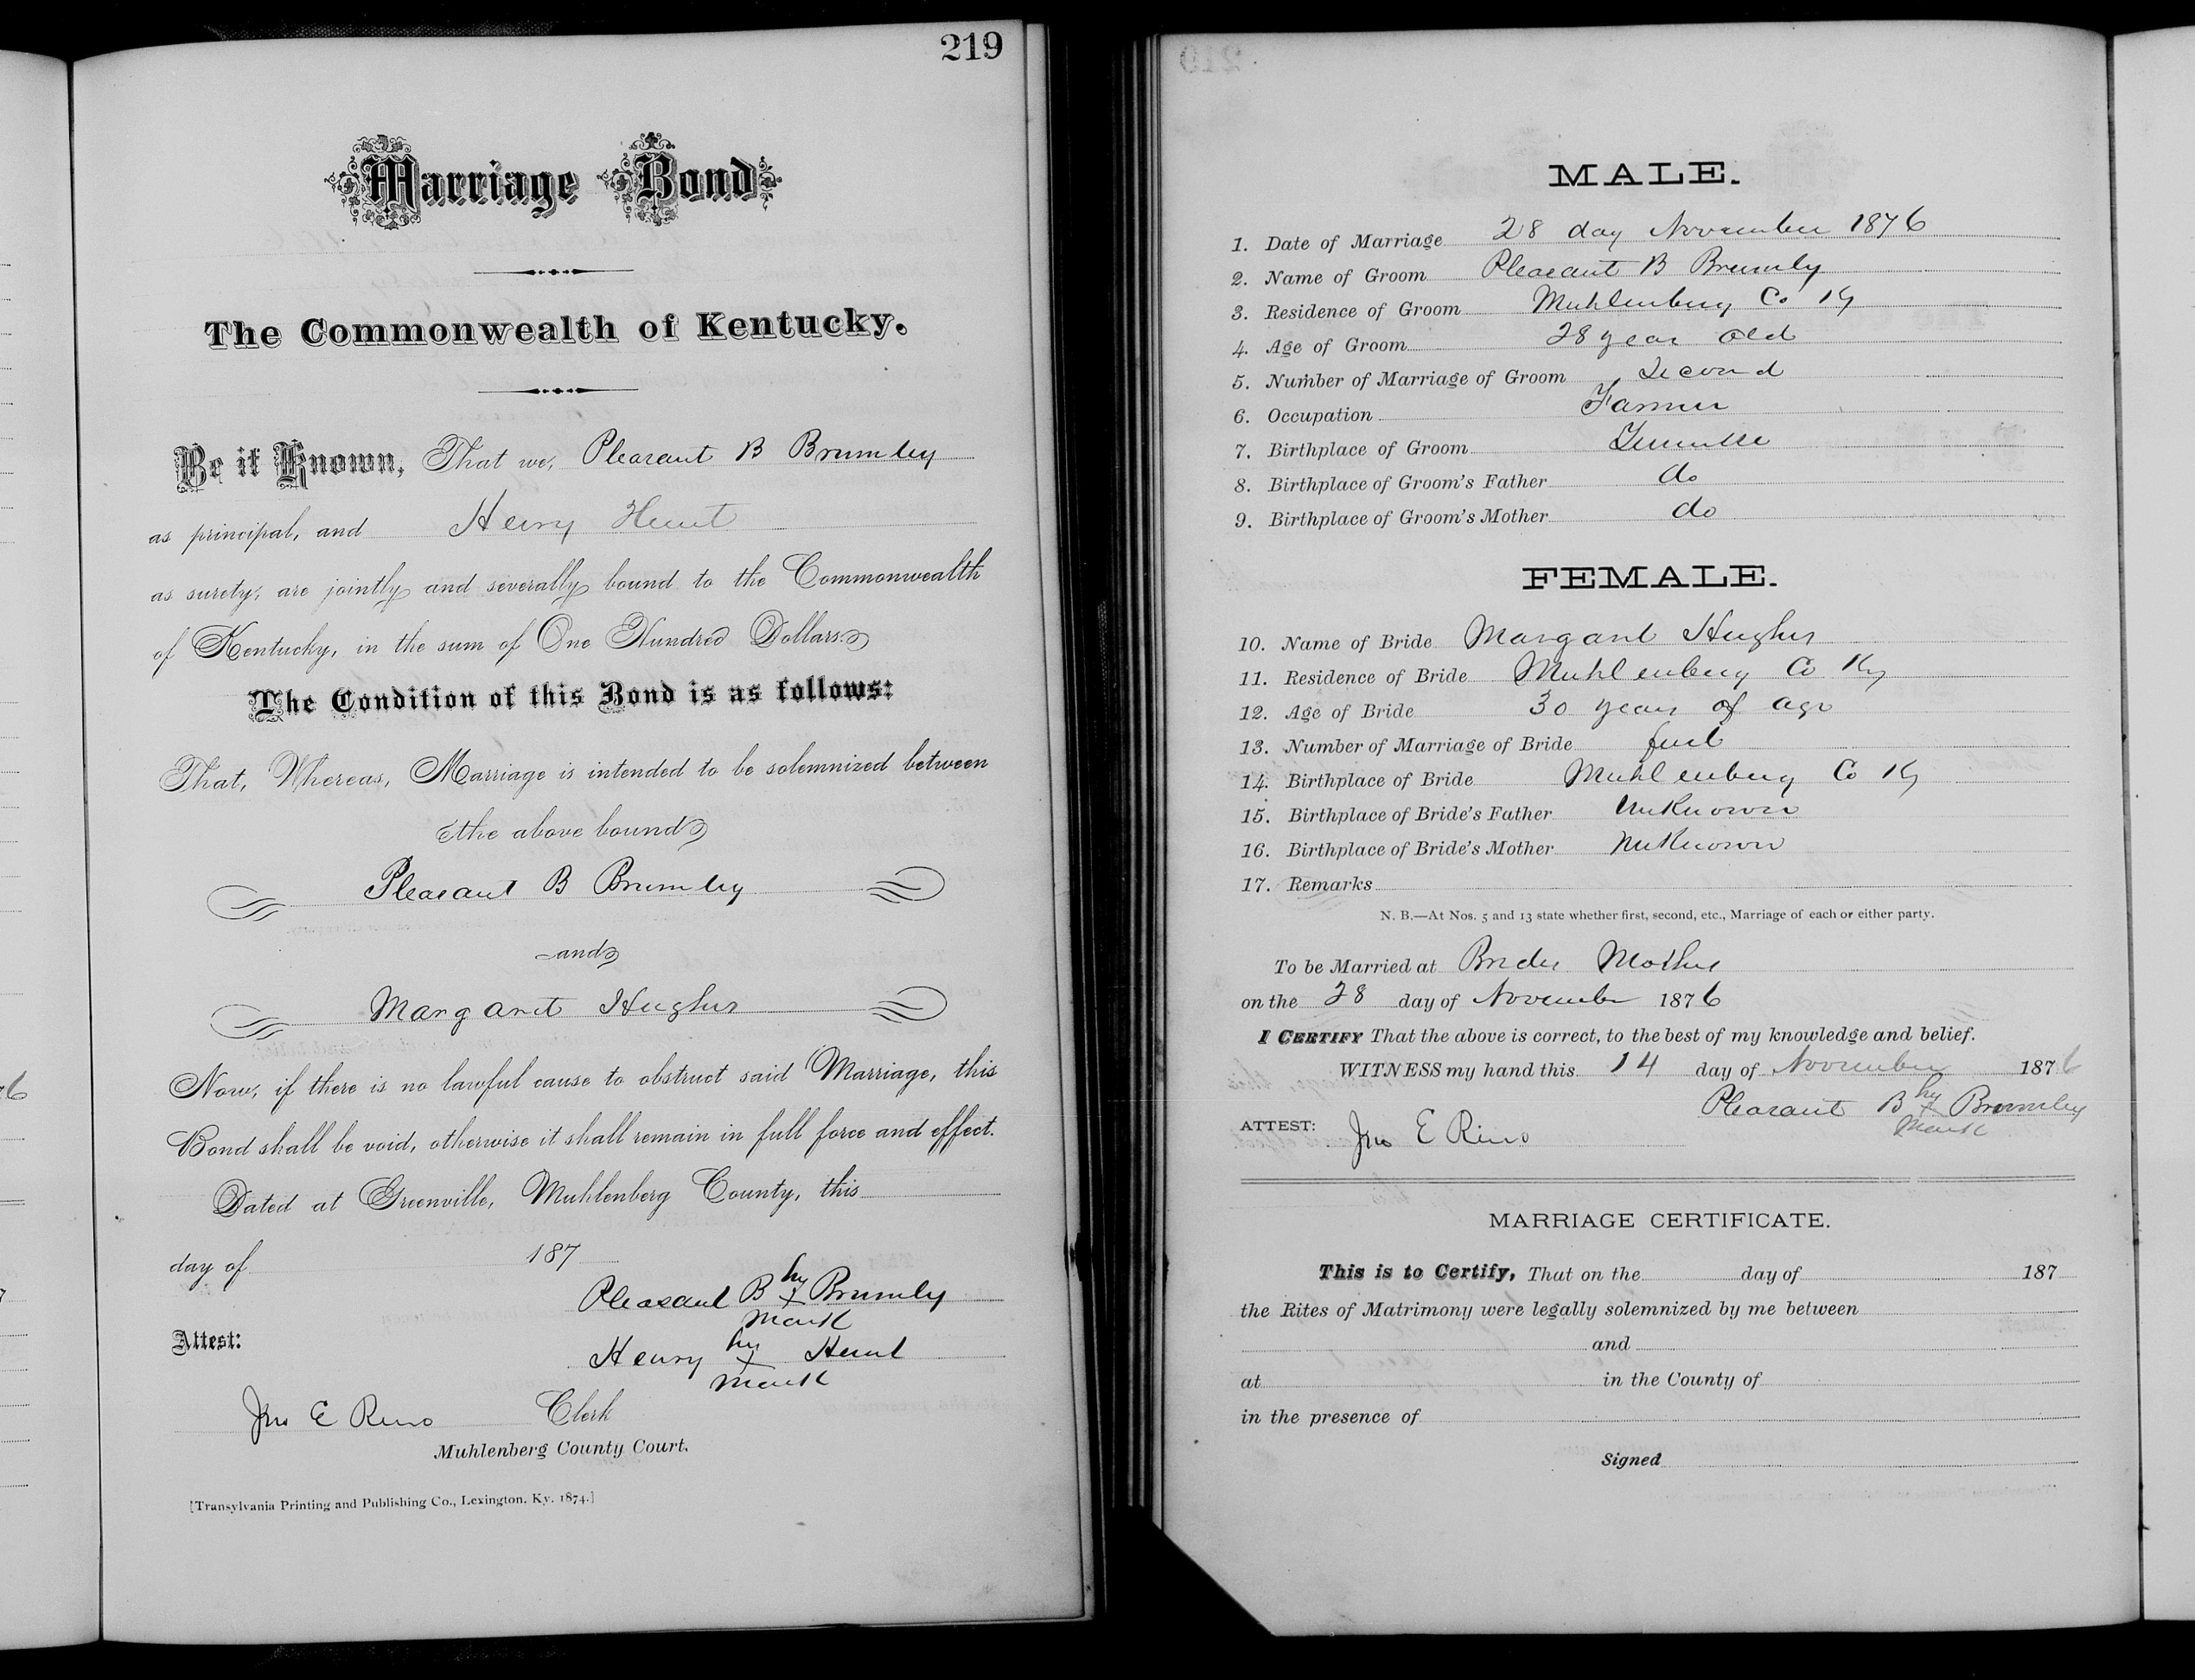 219
Marriage Bond
The Commonwealth of Kentucky.
Be it Known, That we, Pleasant B Brumley
as principal, and Henry Hunt
as surety, are jointly and severally bound to the Commonwealth
of Kentucky, in the sum of One Hundred Dollars.
The Condition of this Bond is as follows:
That, Whereas, Marriage is intended to be solemnized between
the above bound
Pleasant B Brumley
and
Margaret Hughes
Now, if there is no lawful cause to obstruct said Marriage, this
Bond shall be void, otherwise it shall remain in full force and effect.
Dated at Greenville, Muhlenberg County, this
day of 187
Pleasant B his x mark Brumley
Attest:
Henry his x mark Hunt
Jno E Reno Clerk
Muhlenberg County Court.
[Transylvania Printing and Publishing Co., Lexington. Ky. 1874.]
MALE.
1. Date of Marriage 28 day November 1876
2. Name of Groom Pleasant B Brumly
3. Residence of Groom Muhlenberg Co Ky
4. Age of Groom 28 year old
5. Number of Marriage of Groom Second
6. Occupation Farmer
7. Birthplace of Groom Tennessee
8. Birthplace of Groom's Father do
9. Birthplace of Groom's Mother do
FEMALE.
10. Name of Bride Margaret Hughes
11. Residence of Bride Muhlenberg Co Ky
12. Age of Bride 30 years of age
13. Number of Marriage of Bride first
14. Birthplace of Bride Muhlenberg Co Ky
15. Birthplace of Bride's Father Unknown
16. Birthplace of Bride's Mother Unknown
17. Remarks
N. B.—At Nos. 5 and 13 state whether first, second, etc., Marriage of each or either party.
To be Married at Brides Mothers
on the 28 day of November 1876
I CERTIFY That the above is correct, to the best of my knowledge and belief.
WITNESS my hand this 14 day of November 1876
Pleasant B his x mark Brumley
ATTEST: Jno E Reno
MARRIAGE CERTIFICATE.
This is to Certify, That on the day of 187
the Rites of Matrimony were legally solemnized by me between
and
at in the County of
in the presence of
Signed